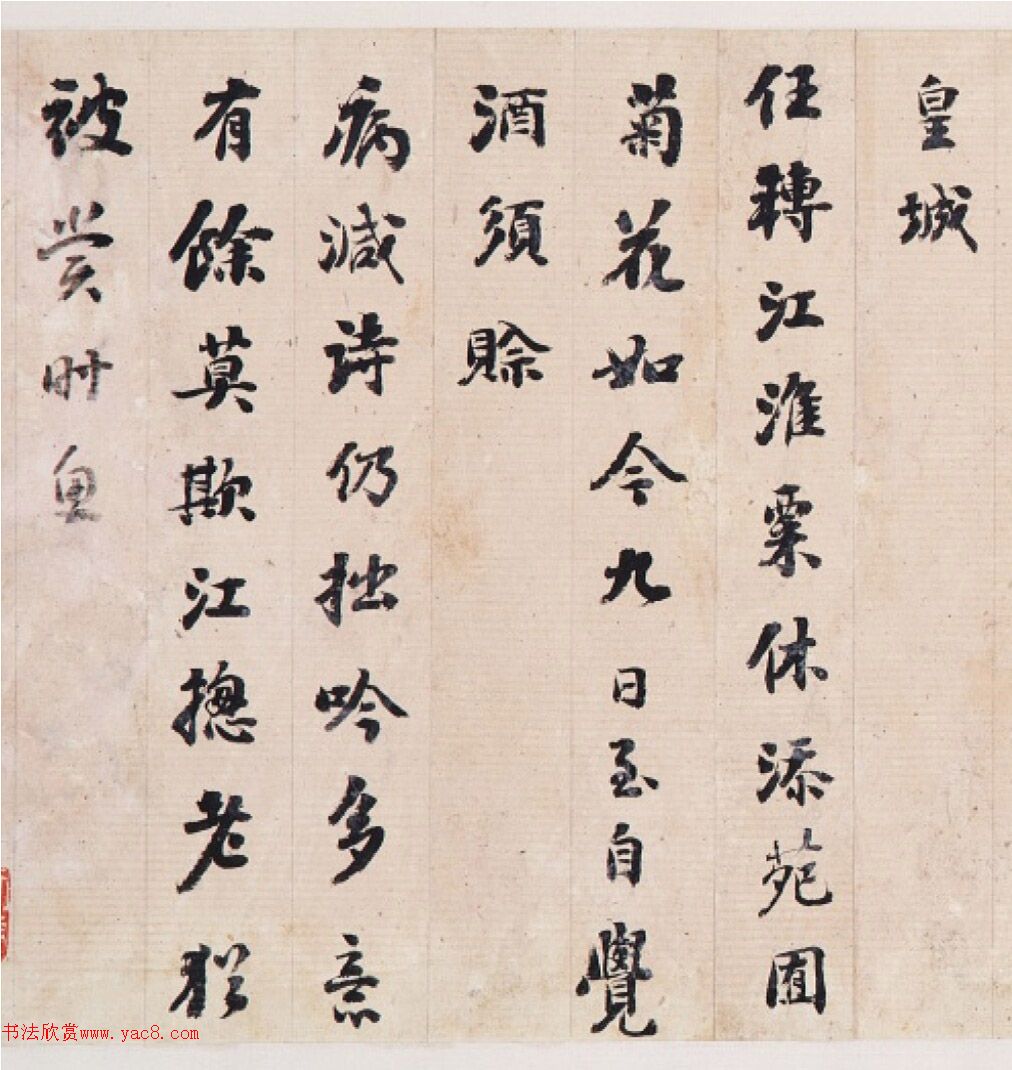 皇城
任轉江淮粟休添苑囿
菊花如今九日至自覺
酒須賒
病減詩仍拙吟多意
有餘莫欺江揔老猶
被賞時魚
书法欣赏www.yac8.com